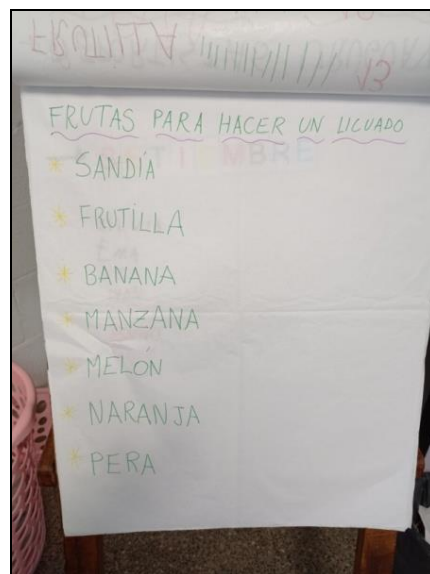 FRUTILLA 13
FRUTAS PARA HACER UN LICUADO
SANDÍA
FRUTILLA
BANANA
MANZANA
MELÓN
NARANJA
PERA